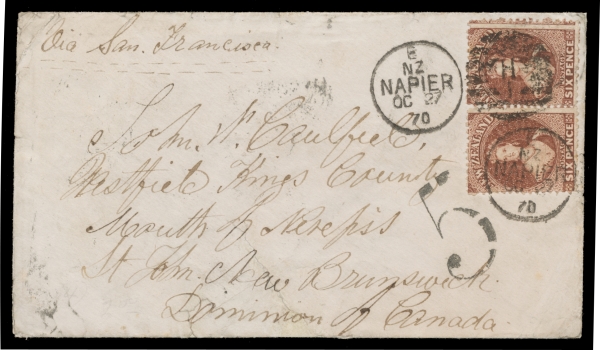 Via San Francisco.
E
NZ
NAPIER
OC 27
70
SIX PENCE
NEW ZEALAND
SIX PENCE
NZ
NAPIER
70
John W. Caulfield,
Westfield Kings County
Mouth of Nerepiss
St John. New Brunswick.
Dominion of Canada.
5